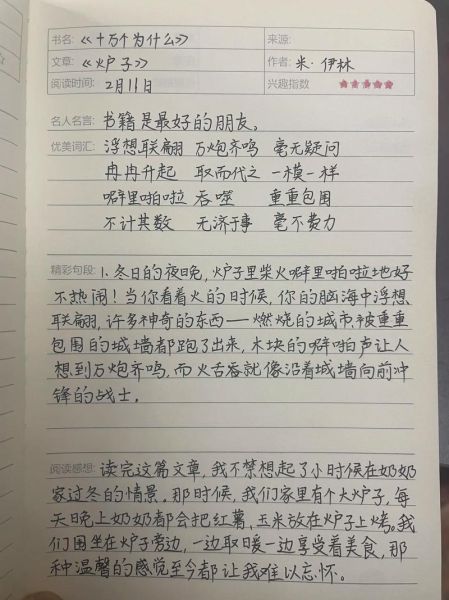 书名:《十万个为什么》 来源:
文章:《炉子》 作者: 米·伊林
阅读时间: 2月11日 兴趣指数 ★★★★★
名人名言: 书籍是最好的朋友。
优美词汇: 浮想联翩 万炮齐鸣 毫无疑问
冉冉升起 取而代之 一模一样
噼里啪啦 吞噬 重重包围
不计其数 无济于事 毫不费力
精彩句段: 1.冬日的夜晚,炉子里柴火噼里啪啦地好
不热闹!当你看着火的时候,你的脑海中浮想
联翩,许多神奇的东西——燃烧的城市,被重重
包围的城墙都跑了出来,木块的噼啪声让人
想到万炮齐鸣,而火舌就像沿着城墙向前冲
锋的战士。
阅读感想: 读完这篇文章,我不禁想起了小时候在奶奶
家过冬的情景。那时候,我们家里有个大炉子,每
天晚上奶奶都会把红薯,玉米放在炉子上烤。我
们围坐在炉子旁边,一边取暖一边享受着美食,那
种温馨的感觉至今都让我难以忘怀。